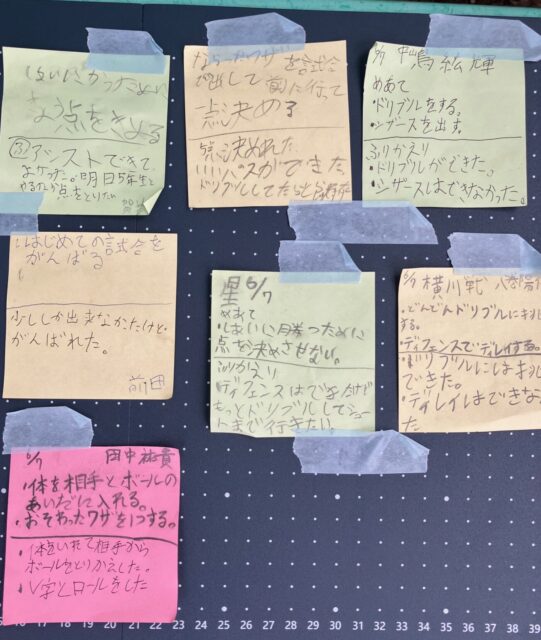 しあいにかつために
な点をきめる
ふ アシストできて
よかった。明日5年生と
やるので点をとりたい
ならったワザを試合
で出して前に行って
点決める
点決めれた
パスができた
ドリブルしてたら
6/7 中嶋紘輝
めあて
・ドリブルをする。
・シザースを出す。
ふりかえり
・ドリブルができた。
・シザースはできなかった。
はじめての試合を
がんばる
少ししか出来なかたけど
がんばれた。
前田
星 6/7
めあて
・しあいに勝つために
点を決めさせない。
ふりかえり
・ディフェンスはできたけど
もっとドリブルしてシュー
トまで行きたい。
6/7 横川戦
・どんどんドリブルに
する。
・ディフェンスでディレイする。
・ドリブルには
できた。
・ディレイはできな
た
6/7 田中祐貴
・体を相手とボールの
あいだに入れる。
・おそわったワザを1つする。
・体をいれて相手から
ボールをとりかえした。
・V字とロールをした
15 16 17 18 19 20 21 22 23 24 25 26 27 28 29 30 31 32 33 34 35 36 37 38 39